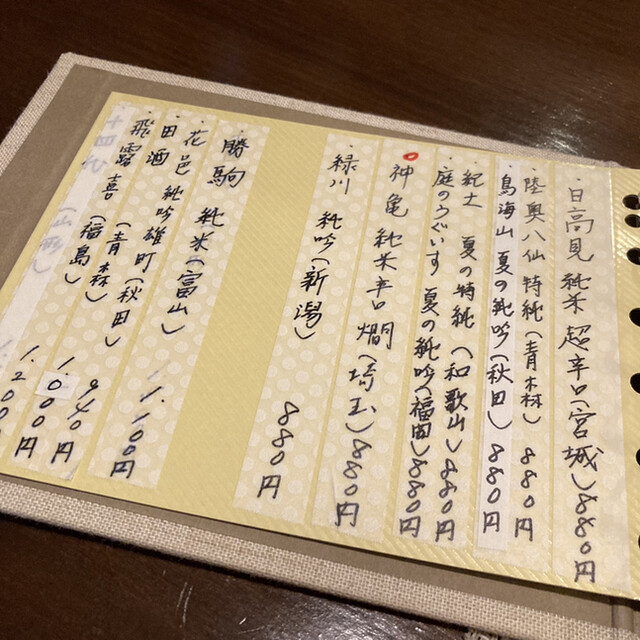 ・日高見 純米 超辛口(宮城)880円
・陸奥八仙 特純(青森)880円
・鳥海山 夏の純吟(秋田)880円
・紀土 夏の特純(和歌山)880円
・庭のうぐいす 夏の純吟(福岡)880円
神亀 純米辛口 燗(埼玉)880円
・緑川 純吟(新潟)880円
勝駒 純米(富山)1.100円
・花邑 純吟雄町(秋田)
・田酒(青森)940円
・飛露喜(福島)1.000円
・十四代(山形)1.200円